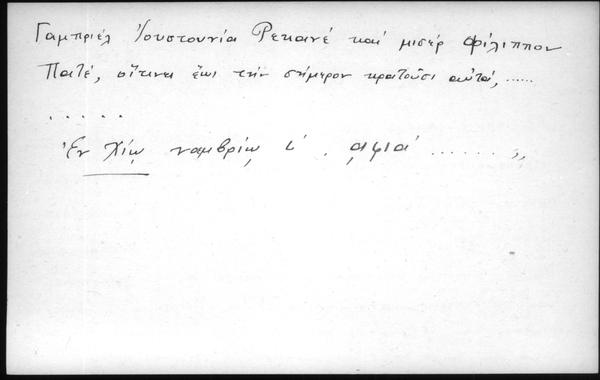 Γαμπριέλ Ἰουστουνία Ρεκανέ καί μισέρ Φίλιππον
Πατέ, οἵτινες ἕως τήν σήμερον κρατοῦσι αὐτά, ......
.....
Ἐν Χίῳ ναμβρίῳ ι΄. ͵αφια΄ ....... „